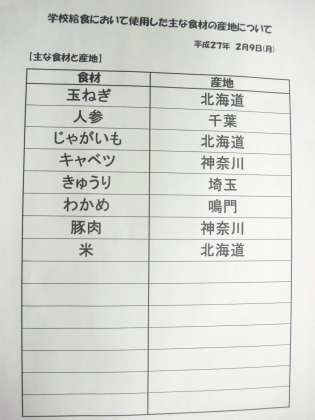 学校給食において使用した主な食材の産地について
平成27年 2月9日(月)
【主な食材と産地】
食材 産地
玉ねぎ 北海道
人参 千葉
じゃがいも 北海道
キャベツ 神奈川
きゅうり 埼玉
わかめ 鳴門
豚肉 神奈川
米 北海道